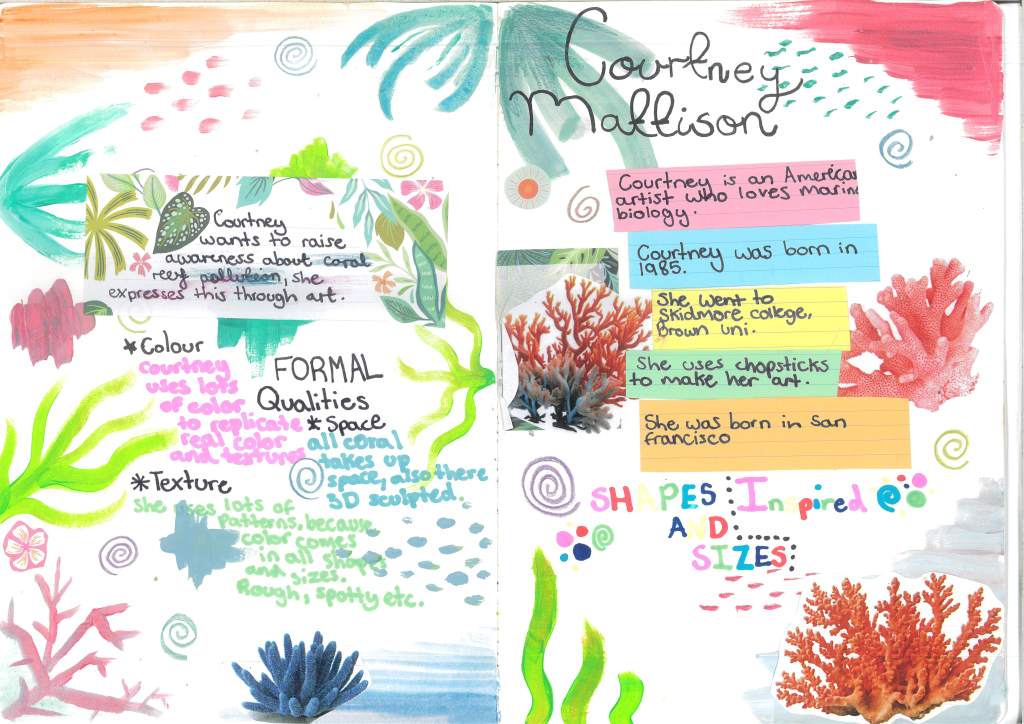 Courtney
wants to raise
awareness about coral
reef pollution, she
expresses this through art.
*Colour
Courtney
uses lots
of color
to replicate
real color
and textures
FORMAL
Qualities
*Space
all coral
takes up
space, also there
3D sculpted.
*Texture
She uses lots of
patterns, because
color comes
in all shapes
and sizes.
Rough, spotty etc.
Courtney
Mattison
Courtney is an American
artist who loves marine
biology.
Courtney was born in
1985.
She went to
Skidmore college,
Brown uni.
She uses chopsticks
to make her art.
She was born in San
francisco
SHAPES Inspired
AND
SIZES